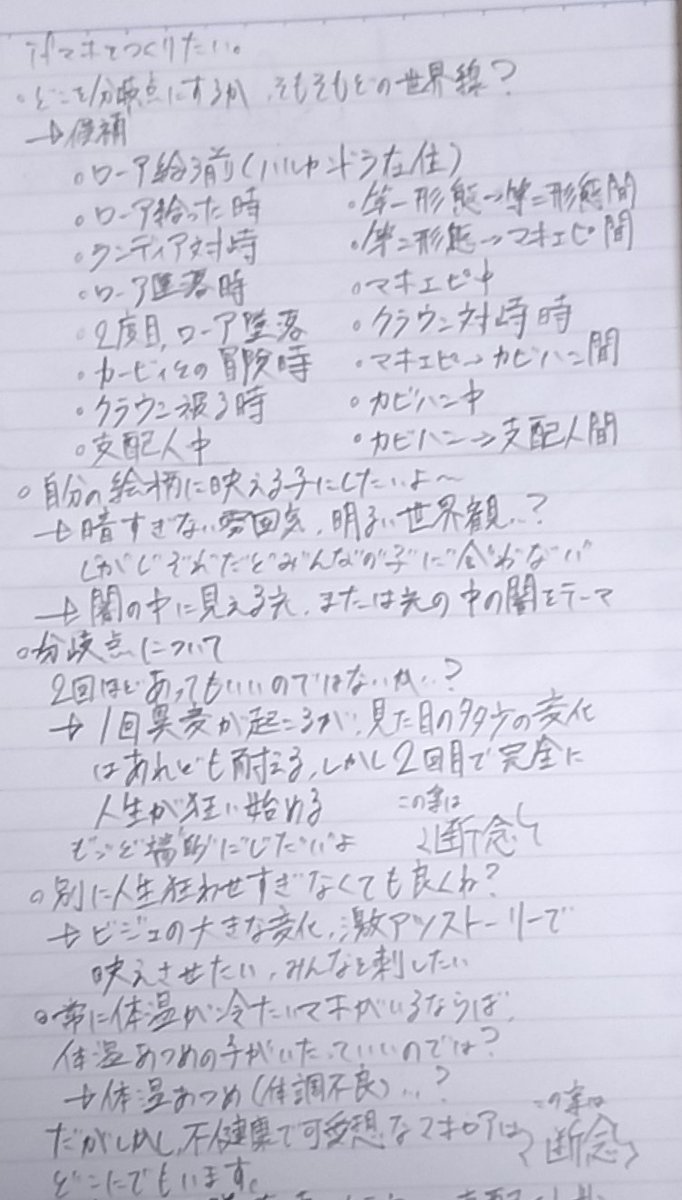 ifマホをつくりたい。
◦どこを分岐点にするか、そもそもどの世界線?
→候補
◦ローア拾う前(ハルカンドラ在住)
◦ローア拾った時
◦ランディア対峙
◦ローア墜落時
◦2度目、ローア墜落
◦カービィその冒険時
◦クラウン被る時
◦支配人中
◦第一形態→第二形態間
◦第二形態→マホエピ間
◦マホエピ中
◦クラウン対峙時
◦マホエピ→カビハン間
◦カビハン中
◦カビハン→支配人間
◦自分の絵柄に映える子にしたいよ〜
→暗すぎない雰囲気、明るい世界観…?
しがじぞれ゛だど゛みんなの゛子゛に゛合゛わな゛い゛
→闇の中に見える光、または光の中の闇をテーマ
◦分岐点について
2回ほどあってもいいのではないか…?
→1回異変が起こるが、見た目の多少の変化
はあれども耐える、しかし2回目で完全に
人生が狂い始める
この案は
断念
も゛っど端的にじだい゛よ
◦別に人生狂わせすぎなくても良くね?
→ビジュの大きな変化、激アツストーリーで
映えさせたい、みんなを刺したい
◦常に体温が冷たいマホがいるならば、
体温あつめの子がいたっていいのでは?
→体温あつめ(体調不良)…?
この案は
断念
だがしかし、不健康で可愛想なマホロアは
どこにでもいます。